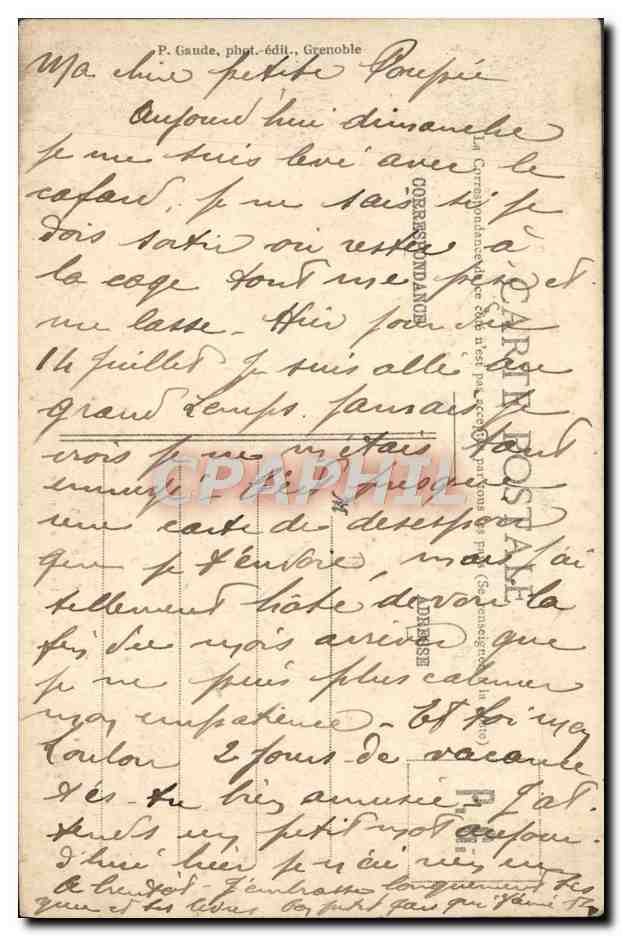 P. Gaude, phot.-édit., Grenoble
Ma chère petite Poupée
Aujourd'hui dimanche
je me suis levé avec le
cafard, je ne sais si je
dois sortir ou rester à
la cage tout me pèse et
me lasse - Hier jour du
14 juillet je suis allé au
grand Lemps. Jamais je
crois je ne m'étais tant
ennuyé - C'est presque
une carte de désespoir
que je t'envoie, mais j'ai
tellement hâte de voir la
fin du mois arriver que
je ne puis plus calmer
mon impatience - Et toi mon
Loulou 2 jours de vacance
t'es-tu bien amusée - J'at-
tends un petit mot aujour-
d'hui hier je n'ai rien eu
A bientôt - J'embrasse longuement tes
yeux et tes lèvres Ton petit
CARTE POSTALE
La Correspondance de ce côté n'est pas acceptée par tous les pays (Se renseigner à la Poste)
CORRESPONDANCE
ADRESSE
M
P.G.
CPAPHIL